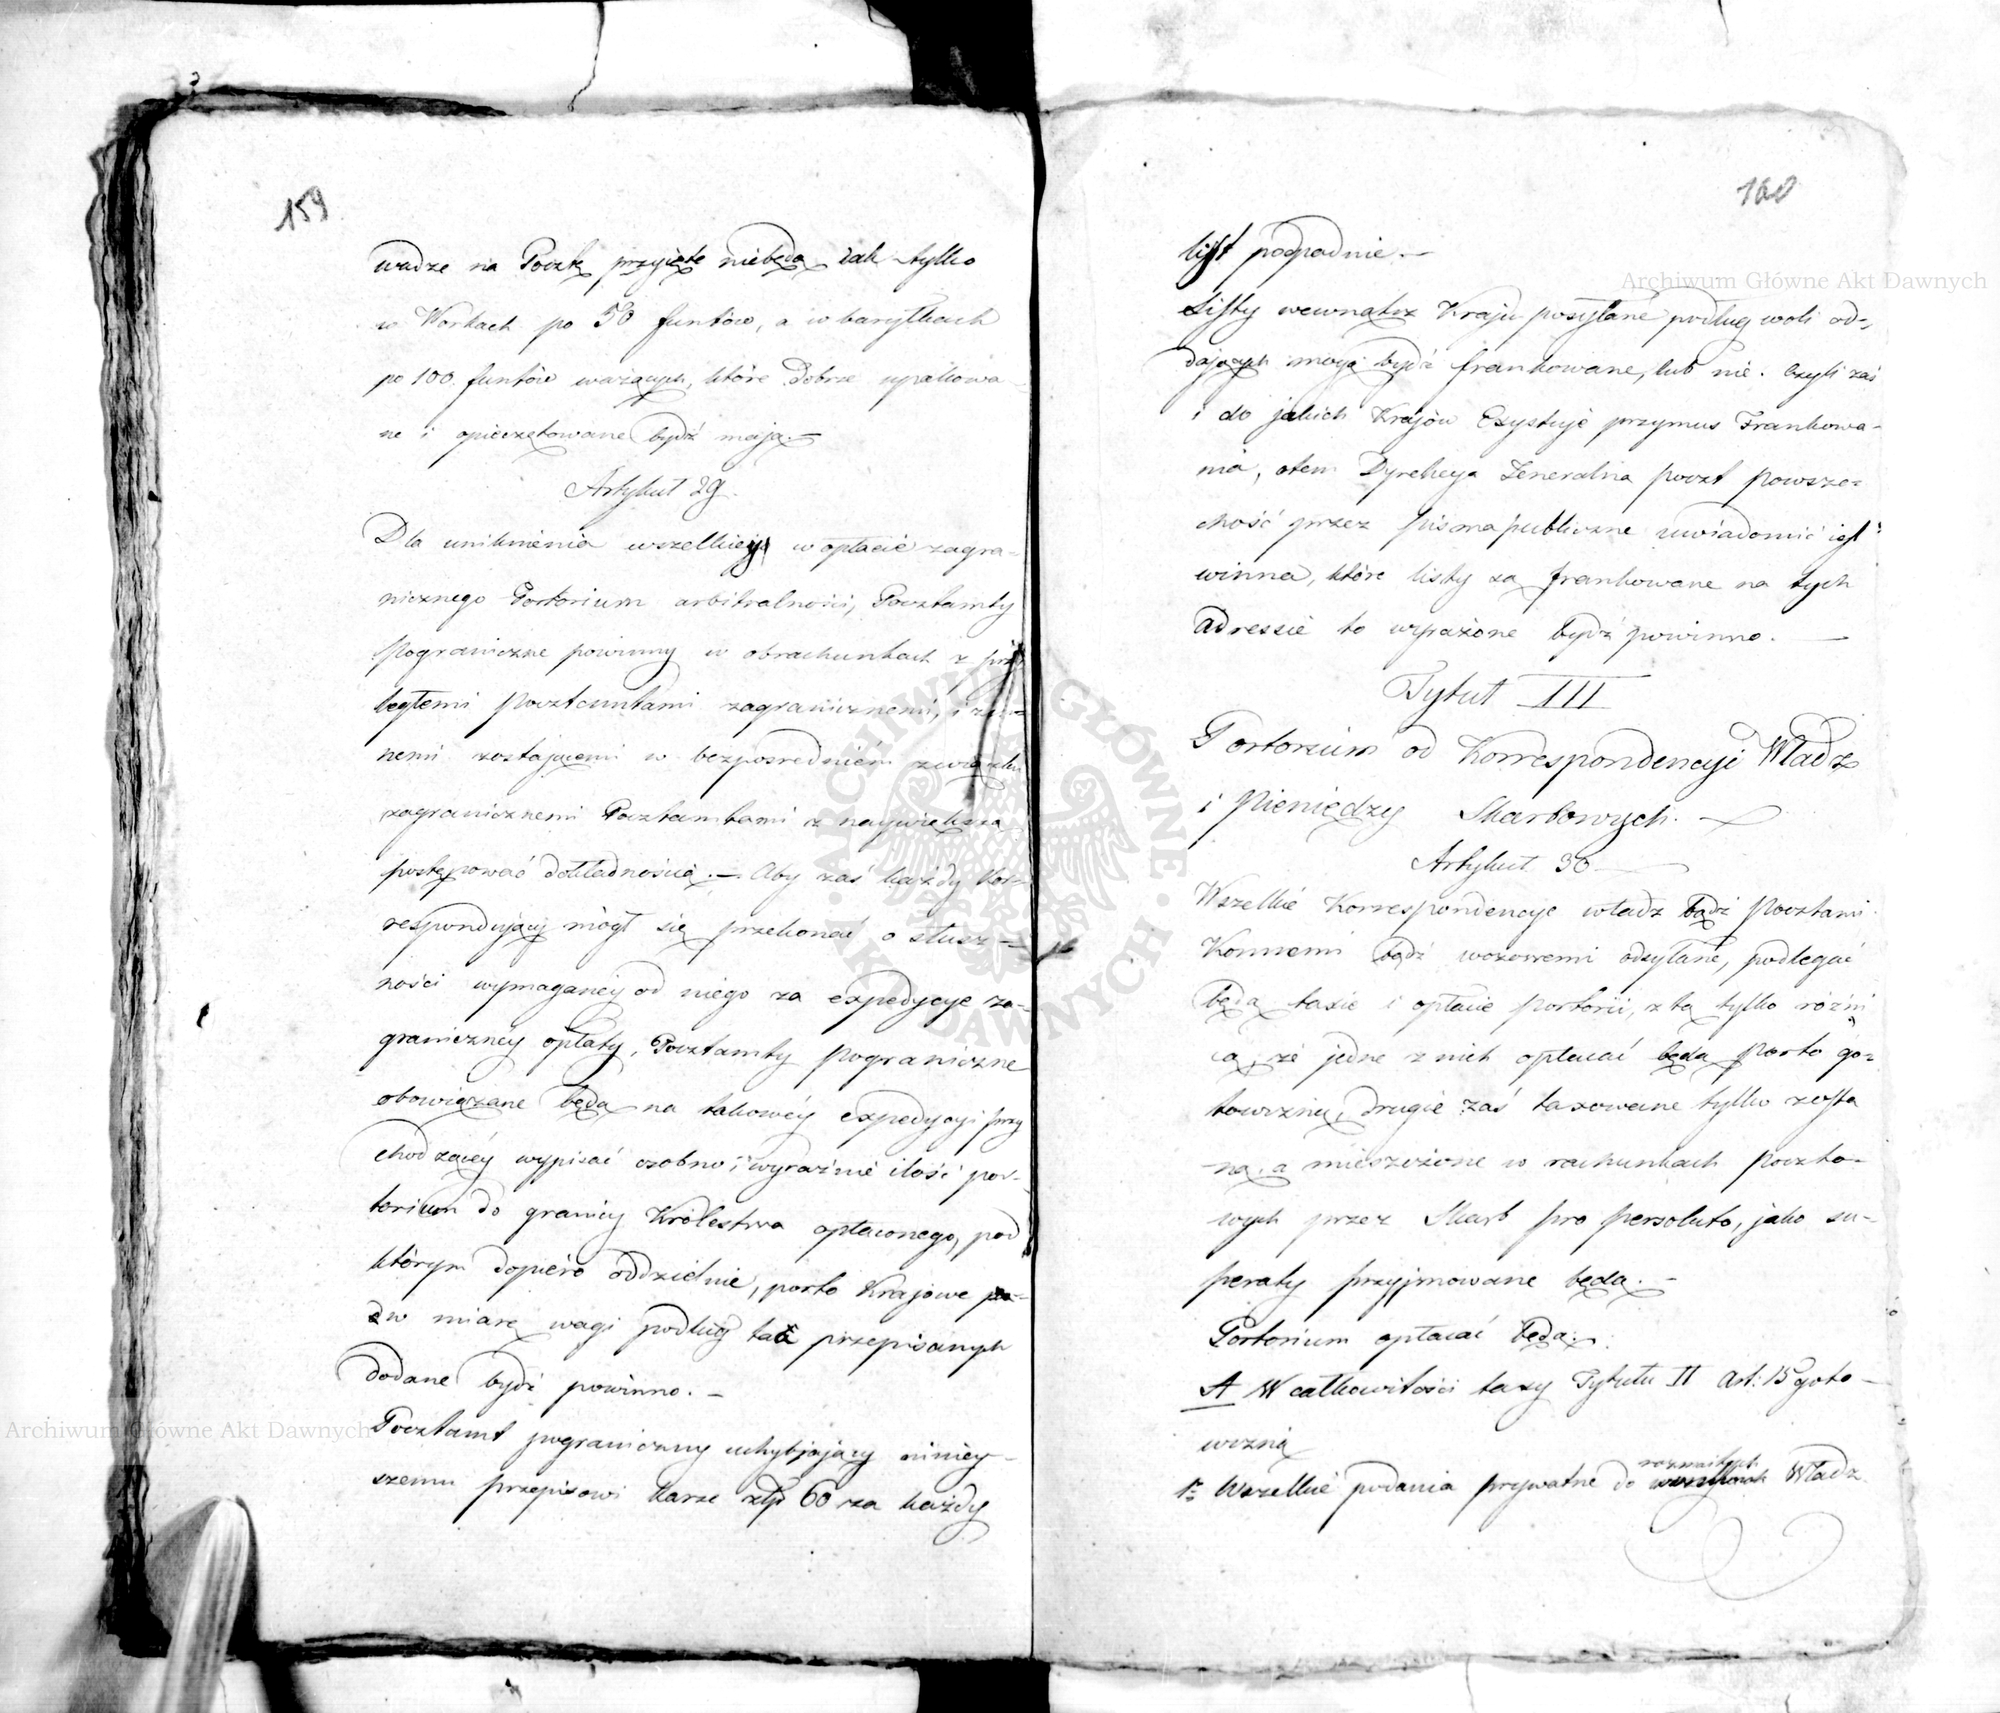 159
wadze na Pocztę przyięte niebędą, iak tylko
w Workach po 50 funtów, a w baryłkach
po 100 funtów ważących, które dobrze upakowa-
ne i opieczętowane bydź mają. —
Artykuł 29.
Dla uniknienia wszelkiey w opłacie zagra-
nicznego Portorium arbitralności, Pocztamty
pograniczne powinny w obrachunkach z
ległemi Pocztamtami zagranicznemi, i z
nemi zostającemi w bezpośredniém związku
zagranicznemi Pocztamtami z naywiększą
postępować dokładnością. — Aby zaś każdy kor-
respondujący mógł się przekonać o słusz-
ności wymaganey od niego za expedycyę za-
graniczney opłaty, Pocztamty pograniczne
obowiązane będą na takowéy expedycyi przy
chodzącéy wypisać osobno i wyraźnie ilość por-
torium do granicy Królestwa opłaconego, pod
którym dopiéro oddzielnie, porto Krajowe
w miarę wagi podług tax przepisanych
dodane bydź powinno. —
Pocztamt pograniczny uchybiający niniey-
szemu przepisowi karze złp 60 za każdy
160
list podpadnie. —
Listy wewnątrz Kraju posyłane podług woli od-
dających mogą bydź frankowane, lub nie. Czyli zaś
i do jakich Krajów Exystuje przymus Frankowa-
nia, otem Dyrekcya Jeneralna poczt powsze-
chność przez pisma publiczne uwiadomić
winna, które listy są frankowane na tych
adressie to wyrażone bydź powinno. —
Tytuł III
Portorium od Korrespondencyi Władz
i Pieniędzy Skarbowych. —
Artykuł 30 —
Wszelkie Korrespondencye władz bądź pocztami
Konnemi bądź wozowemi odsyłane, podlegać
będą taxie i opłacie portorii, z tą tylko różni
cą, że jedne z nich opłacać będą porto go-
towizną, drugie zaś taxowane tylko zosta
ną, a mieszczone w rachunkach poczto-
wych przez Skarb pro persoluto, jako su-
peraty przyjmowane będą. —
Portorium opłacać będą.
A W całkowitości taxy Tytułu II Art: 15 goto-
wizną
rozmaitych
1º Wszelkie podania prywatne do Władz
Archiwum Główne Akt Dawnych
Archiwum Główne Akt Dawnych
ARCHIWUM GŁÓWNE AKT DAWNYCH